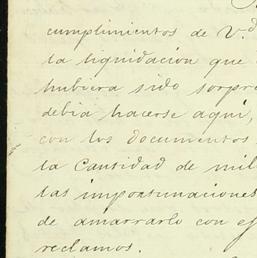 cumplimientos de V.d
la liquidacion que
hubiera sido sorpre
debia hacerse aqui,
con los documentos
la cantidad de mil
las importunaciones
de amarrarlo con ef
reclamos.